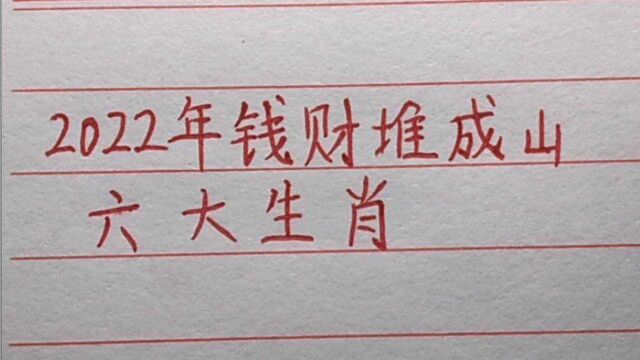 2022年钱财堆成山
六大生肖